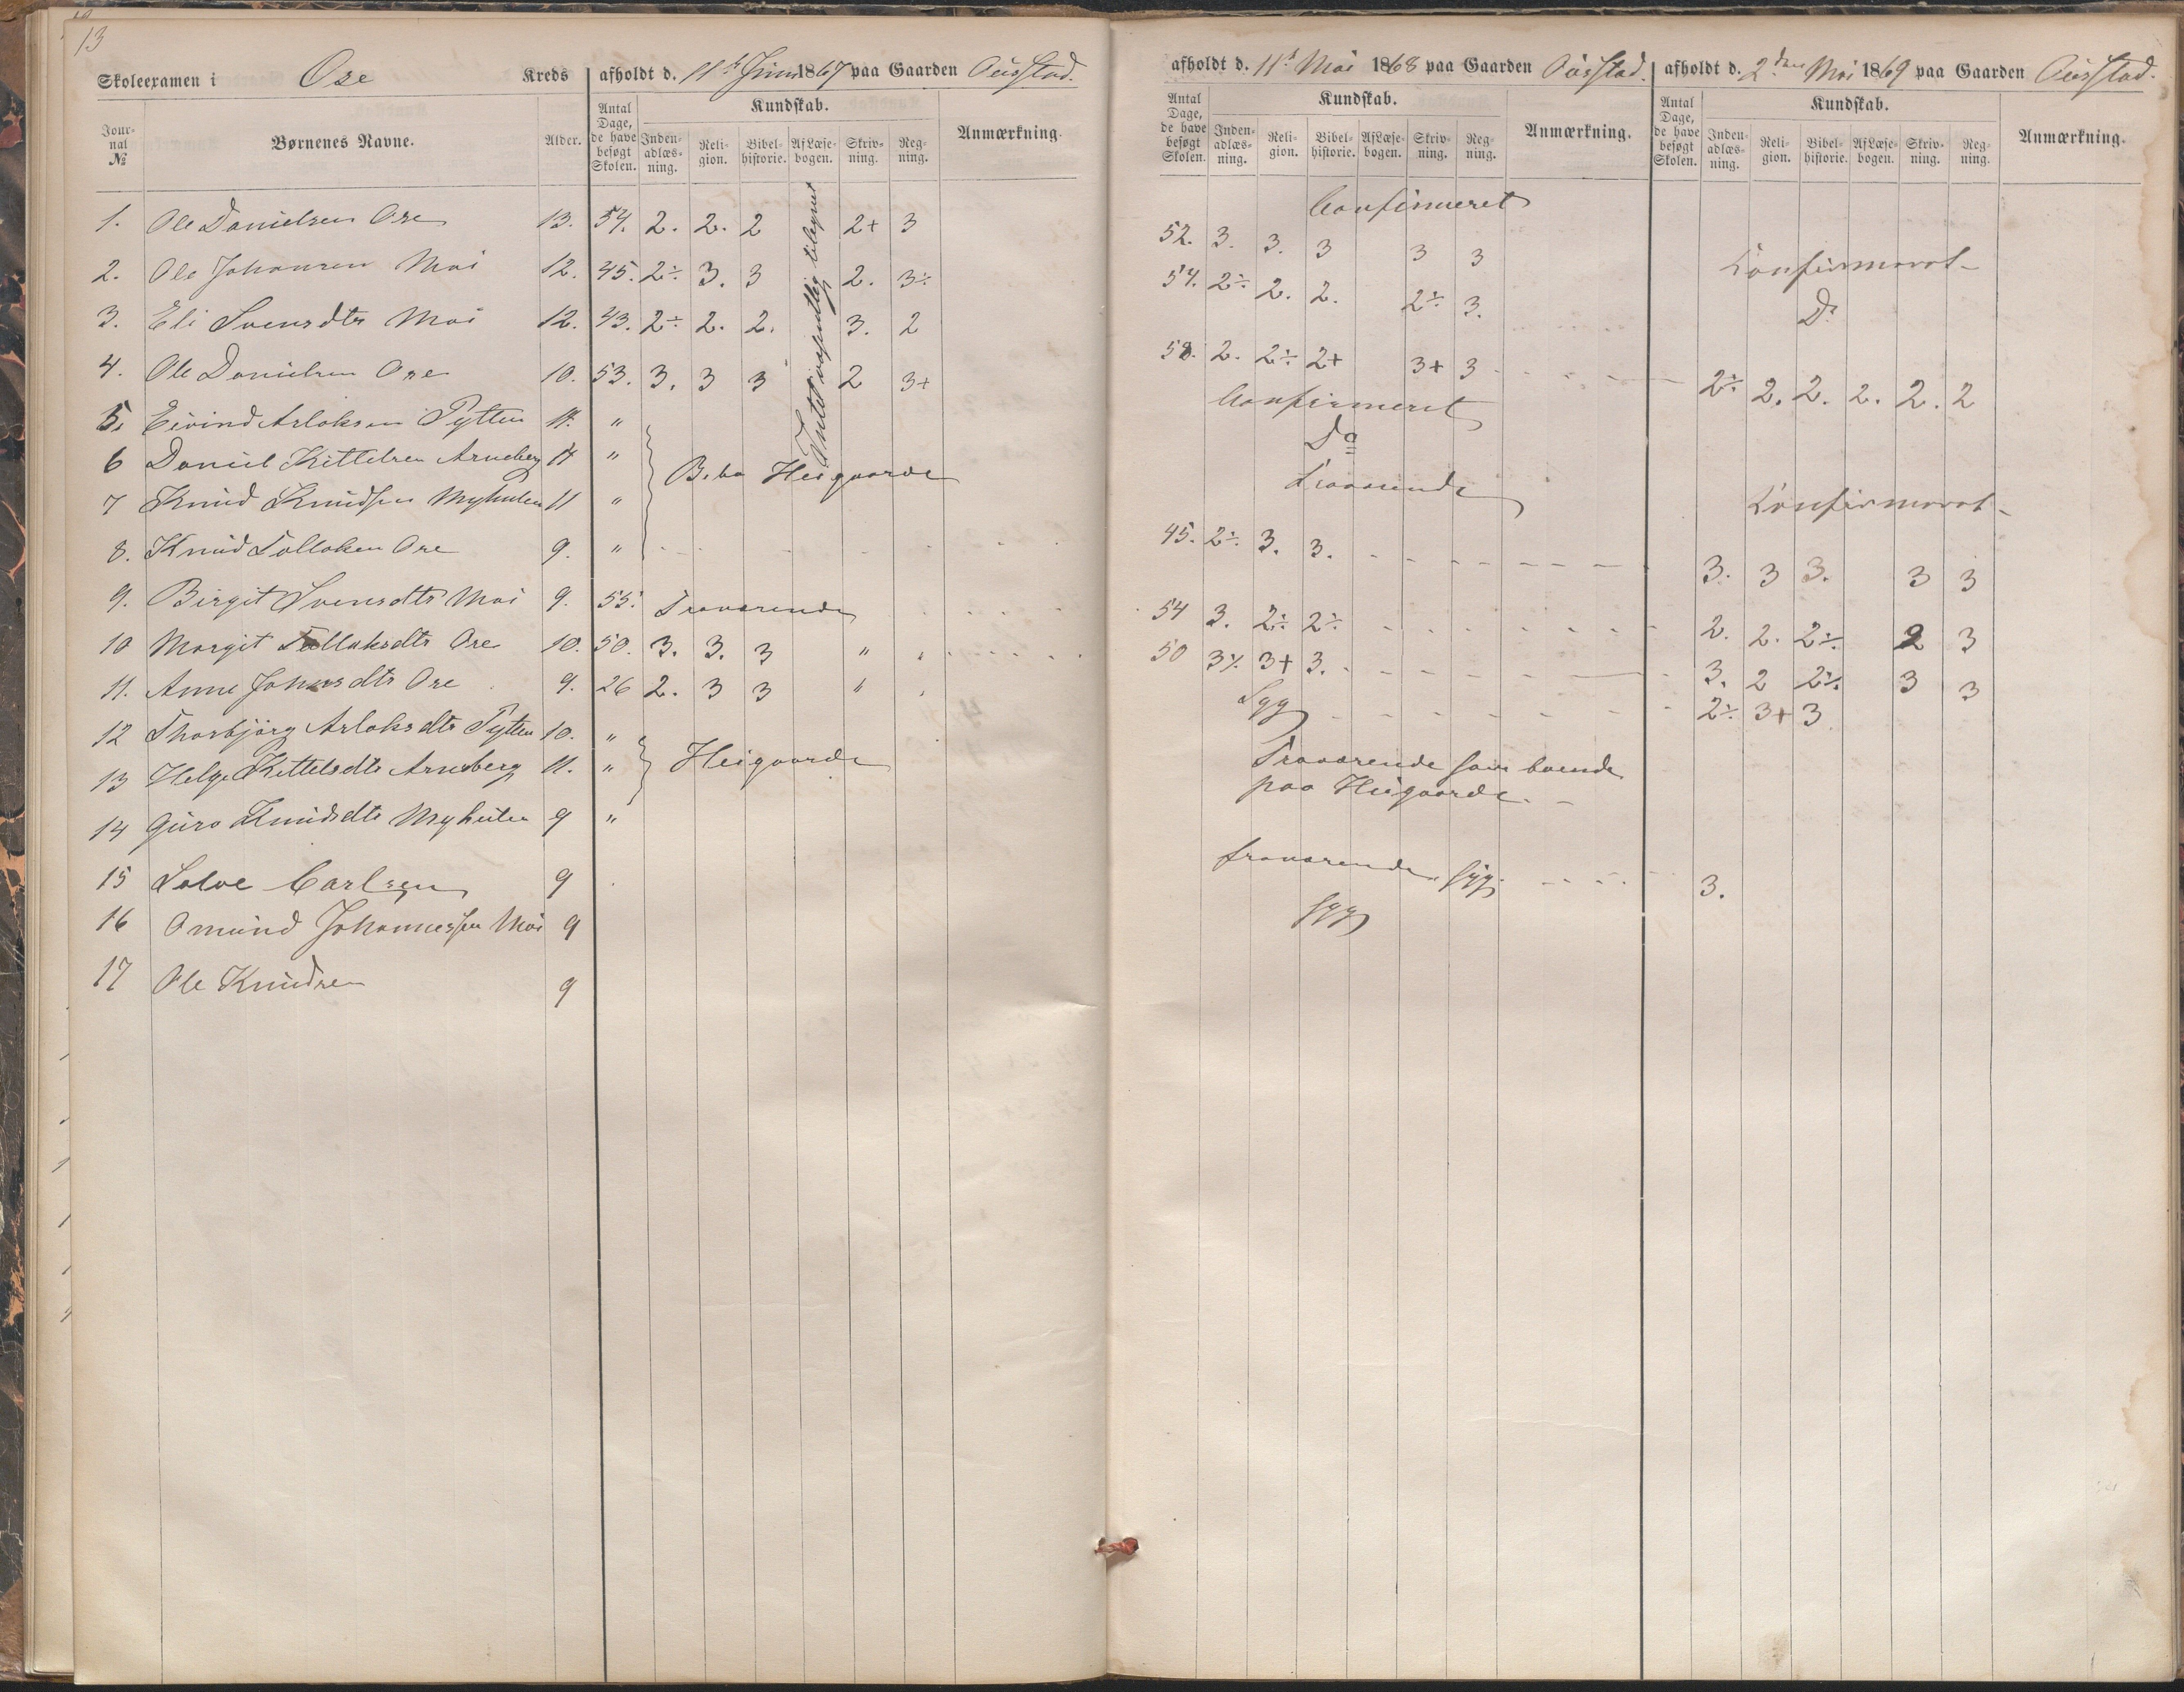 13
Skoleexamen i Ose Kreds afholdt d. 11te Juni 1867 paa Gaarden Ousstad.
Jour-nal № Børnenes Navne. Alder. Antal Dage, de have besøgt Skolen. Kundskab. Inden-adlæs-ning. Reli-gion. Bibel-historie. Af Læse-bogen. Skriv-ning. Reg-ning. Anmærkning.
1. Ole Danielsen Ose 13. 54. 2. 2. 2 2+ 3
2. Ole Johansen Moi 12. 45. 2÷ 3. 3 2. 3÷
3. Eli Svensdtr Moi 12. 43. 2÷ 2. 2. 3. 2
4. Ole Danielsen Ose 10. 53. 3. 3 3 2 3+
5. Eivind Aslaksen Pytten 11. "
6 Daniel Kittelsen Arneberg 11 "
7 Knud Knudsen Myhulen 11 "
B. bo Heigaarde
8. Knud Tollaksen Ose 9. "
9. Birgit Svensdtr Moi 9. 55. Fraværende
10 Margit Tollaksdtr Ose 10. 50. 3. 3. 3 " "
11. Anne Johnsdtr Ose 9. 26 2. 3 3 " "
12 Thorbjörg Aslaksdtr Pytten 10. "
13 Helge Kittelsdtr Arneberg 11. " Heigaarde
14 Guro Knudsdtr Myhulen 9 "
15 Salve Carlsen 9
16 Omund Johannessen Moi 9
17 Ole Knudsen 9
Intet væsentlig tilegnet
afholdt d. 11te Mai 1868 paa Gaarden Ousstad.
Antal Dage, de have besøgt Skolen. Kundskab. Inden-adlæs-ning. Reli-gion. Bibel-historie. Af Læse-bogen. Skriv-ning. Reg-ning. Anmærkning.
Confirmeret
52. 3. 3. 3 3 3
54. 2÷ 2. 2. 2÷ 3.
58. 2. 2÷ 2+ 3+ 3
Confirmeret
Do
Fraværende
45. 2÷ 3. 3.
54 3. 2÷ 2÷
50 3÷ 3+ 3.
Syg
Fraværende som boende
paa Heigaarde.
fraværende, syg
syg
afholdt d. 2den Mai 1869 paa Gaarden Ousstad.
Antal Dage, de have besøgt Skolen. Kundskab. Inden-adlæs-ning. Reli-gion. Bibel-historie. Af Læse-bogen. Skriv-ning. Reg-ning. Anmærkning.
Konfirmeret
Do
2÷ 2. 2. 2. 2. 2
Konfirmeret
3. 3 3. 3 3
2. 2. 2÷ 2 3
3. 2 2÷ 3 3
2÷ 3+ 3
3.